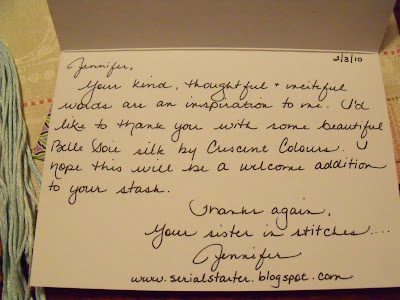 2/3/10
Jennifer,
Your kind, thoughtful + inciteful
words are an inspiration to me. I'd
like to thank you with some beautiful
Belle Soie silk by Crescent Colours. I
hope this will be a welcome addition
to your stash.
Thanks again,
Your sister in stitches....
Jennifer
www.serialstarter.blogspot.com